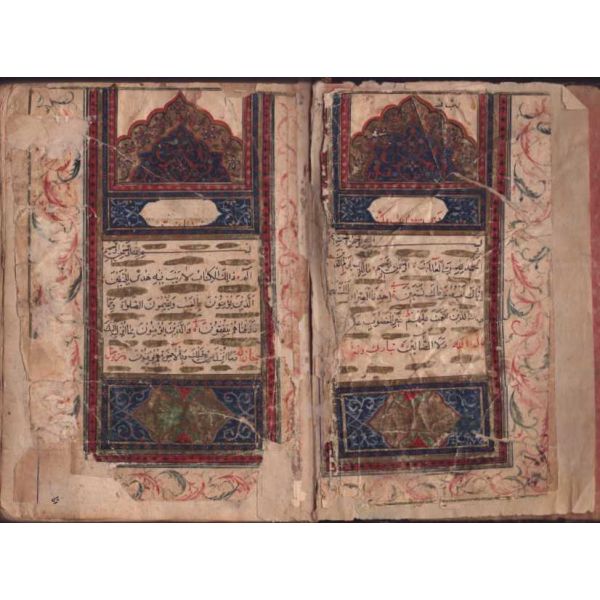 بسم الله الرحمن الرحيم
الحمد لله رب العالمين الرحمن الرحيم مالك يوم الدين
اياك نعبد واياك نستعين اهدنا الصراط المستقيم
صراط الذين انعمت عليهم غير المغضوب عليهم
ولا الضالين تبارك وتعالى
بسم الله الرحمن الرحيم
الم ذلك الكتاب لا ريب فيه هدى للمتقين
الذين يؤمنون بالغيب ويقيمون الصلوة ومما
رزقناهم ينفقون والذين يؤمنون بما انزل اليك
وما انزل من قبلك وبالاخرة هم يوقنون